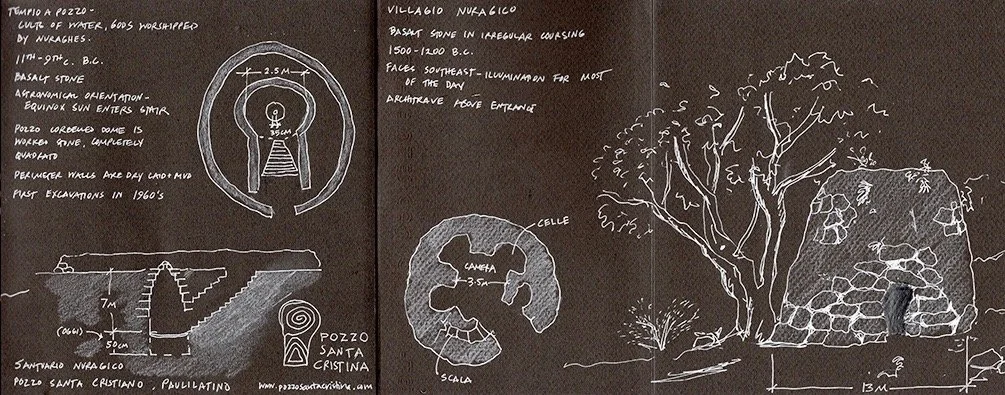 TEMPIO A POZZO -
CULT OF WATER, GODS WORSHIPPED
BY NURAGHES.
11TH-9TH C. B.C.
BASALT STONE
ASTRONOMICAL ORIENTATION-
EQUINOX SUN ENTERS STAIR
POZZO CORBELED DOME IS
WORKED STONE, COMPLETELY
QUADRATO
PERIMETER WALLS ARE DRY LAID + MUD
FIRST EXCAVATIONS IN 1960'S
2.5 M
35CM
7M
(OGGI)
50CM
POZZO
SANTA
CRISTINA
SANTUARIO NURAGICO
POZZO SANTA CRISTIANO, PAULILATINO
www.pozzosantacristina.com
VILLAGIO NURAGICO
BASALT STONE IN IRREGULAR COURSING
1500-1200 B.C.
FACES SOUTHEAST-ILLUMINATION FOR MOST
OF THE DAY
ARCHITRAVE ABOVE ENTRANCE
CELLE
CAMERA
3.5M
SCALA
13M